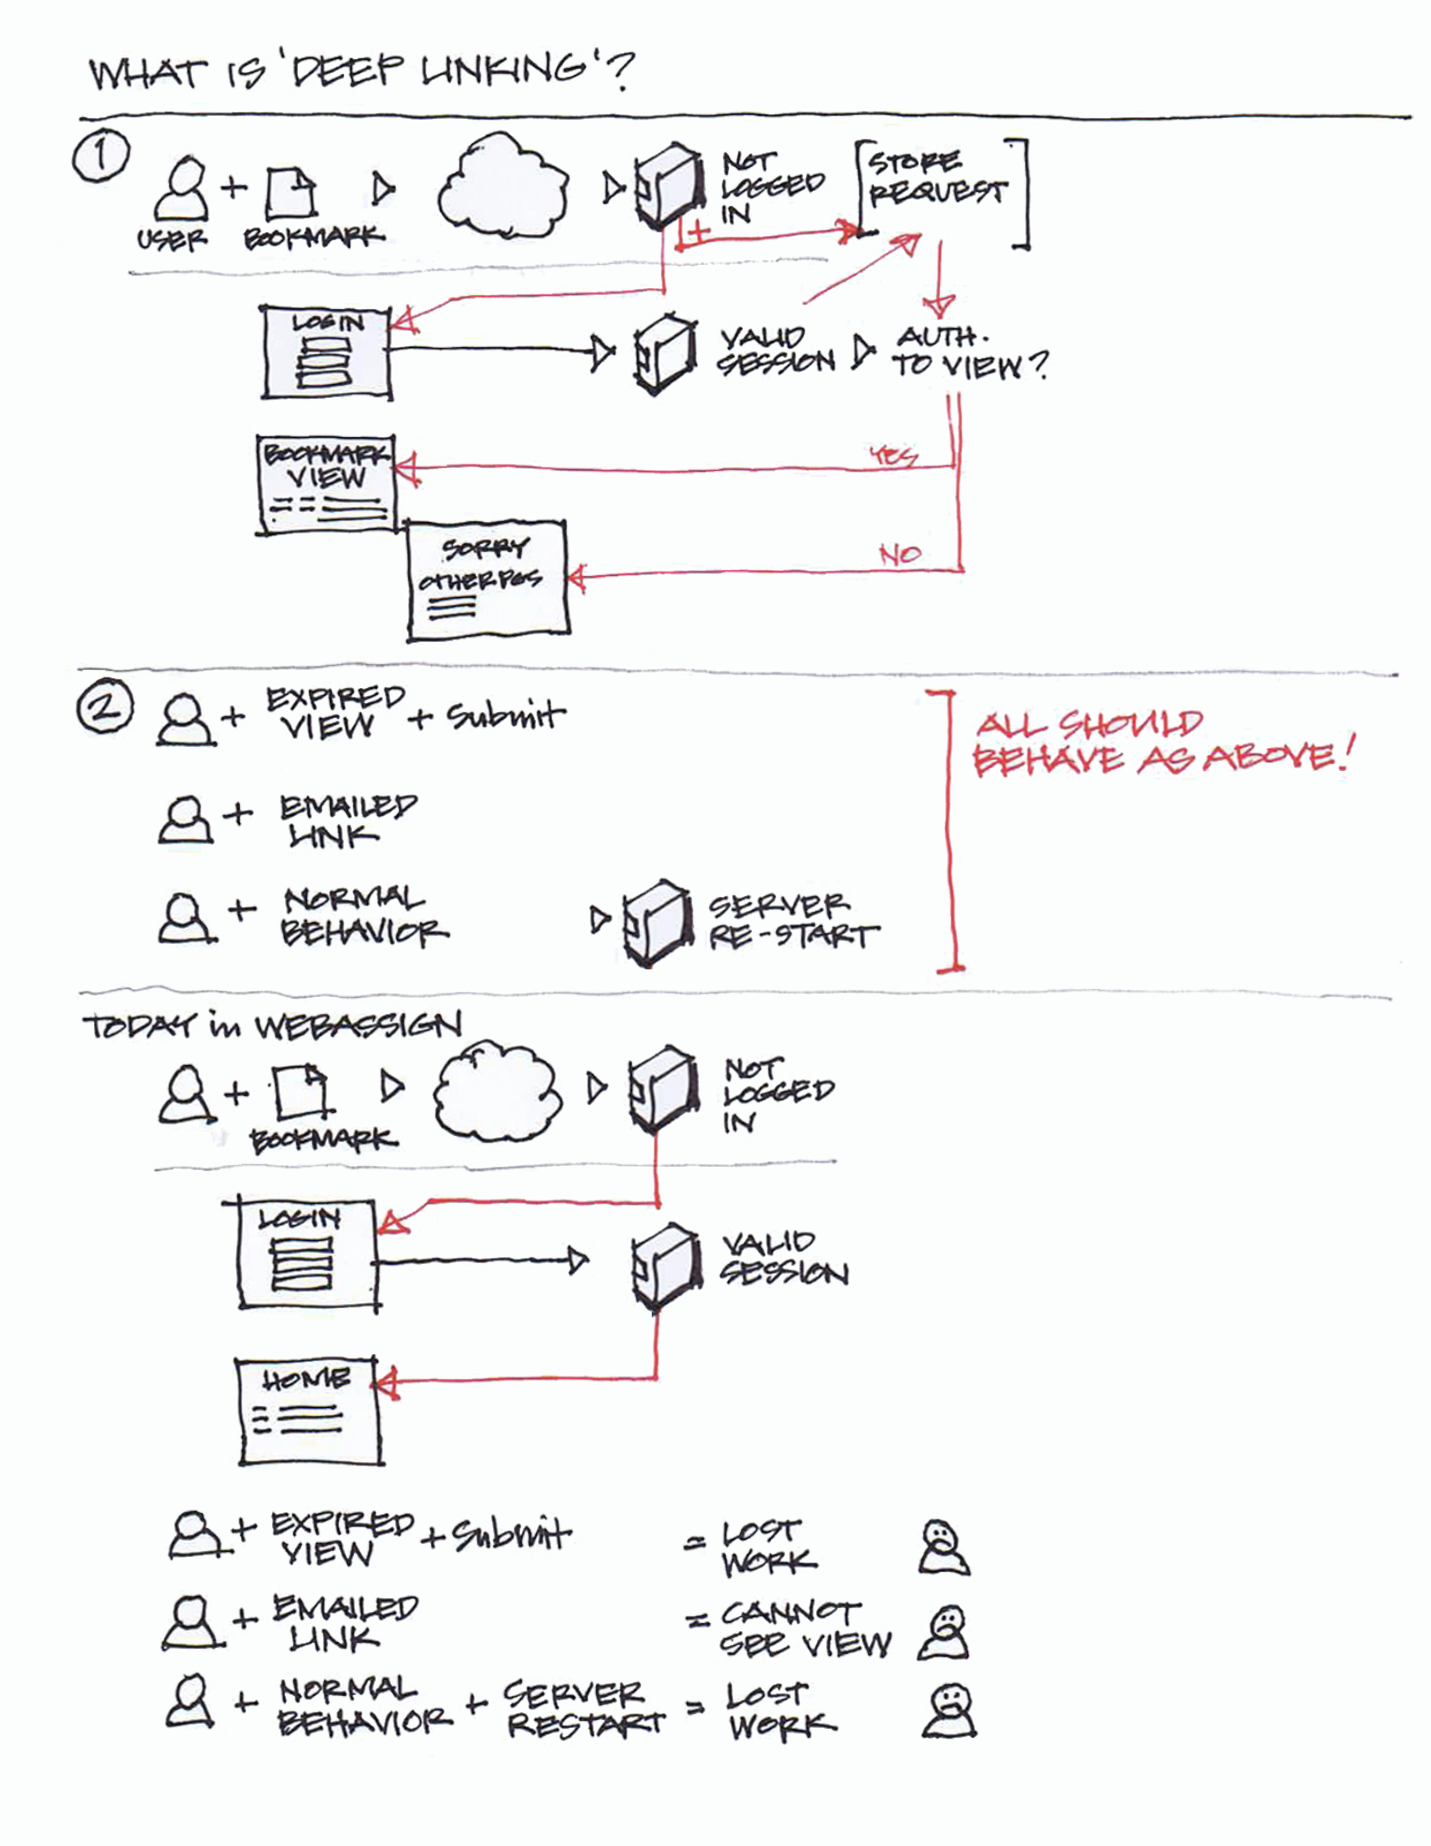 WHAT IS 'DEEP LINKING'?
1
USER
+
BOOKMARK
NOT
LOGGED
IN
+
STORE
REQUEST
LOGIN
VALID
SESSION
AUTH.
TO VIEW?
BOOKMARK
VIEW
YES
SORRY
OTHER POS
NO
2
+ EXPIRED
VIEW + Submit
+ EMAILED
LINK
+ NORMAL
BEHAVIOR
SERVER
RE-START
ALL SHOULD
BEHAVE AS ABOVE!
TODAY in WEBASSIGN
+
BOOKMARK
NOT
LOGGED
IN
LOGIN
VALID
SESSION
HOME
+ EXPIRED
VIEW + Submit
= LOST
WORK
+ EMAILED
LINK
= CANNOT
SEE VIEW
+ NORMAL
BEHAVIOR
+ SERVER
RESTART
= LOST
WORK